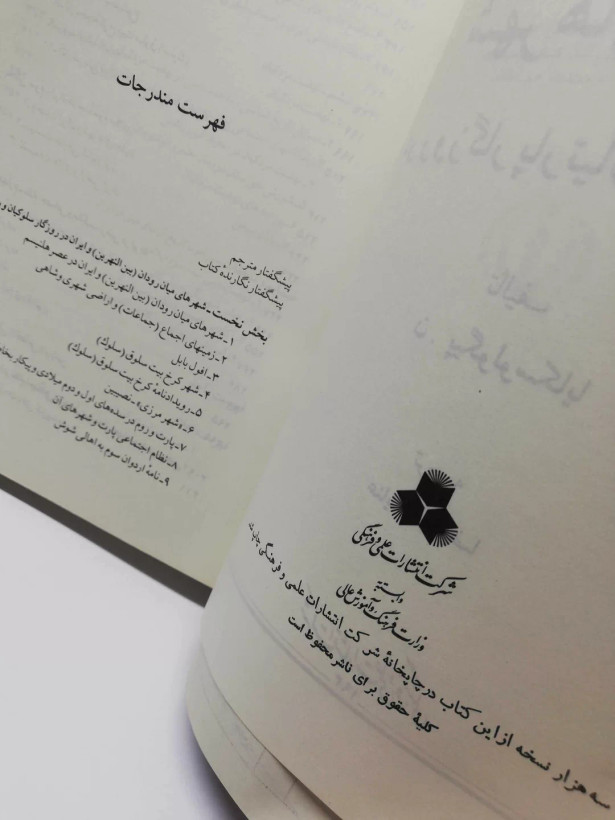 شرکت انتشارات علمی و فرهنگی
وابسته به
وزارت فرهنگ و آموزش عالی
سه هزار نسخه از این کتاب در چاپخانهٔ شرکت انتشارات علمی و فرهنگی چاپ شد
کلیهٔ حقوق برای ناشر محفوظ است
فهرست مندرجات
پیشگفتار مترجم
پیشگفتار نگارندهٔ کتاب
بخش نخست ـ شهرهای میان رودان (بین النهرین) و ایران در روزگار سلوکیان و
۱ـ شهرهای میان رودان (بین النهرین) و ایران در عصر هلنیسم
۲ـ زمینهای اجماع (جماعات) و اراضی شهری و شاهی
۳ـ افول بابل
۴ـ شهر کرخ بیت سلوق (سلوک)
۵ـ رویدادنامهٔ کرخ بیت سلوق (سلوک)
۶ـ «شهر مرزی» ـ نصیبین
۷ـ پارت و روم در سده‌های اول و دوم میلادی و پیکار بخاطر
۸ـ نظام اجتماعی پارت و شهرهای آن
۹ـ نامهٔ اردوان سوم به اهالی شوش